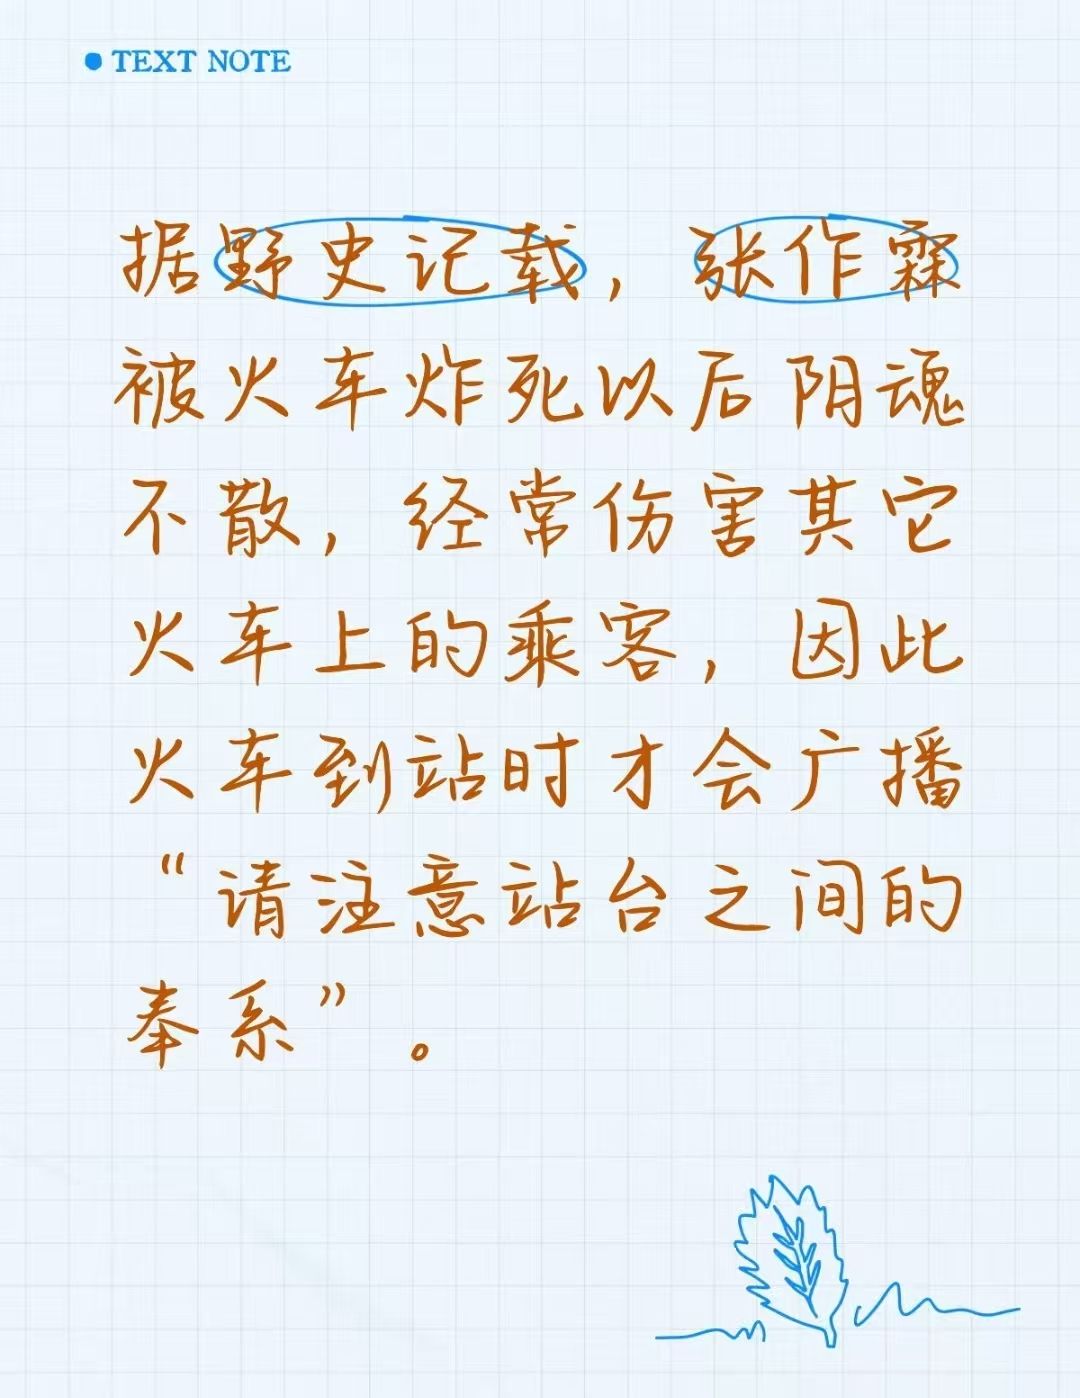 TEXT NOTE
据野史记载，张作霖
被火车炸死以后阴魂
不散，经常伤害其它
火车上的乘客，因此
火车到站时才会广播
“请注意站台之间的
奉系”。